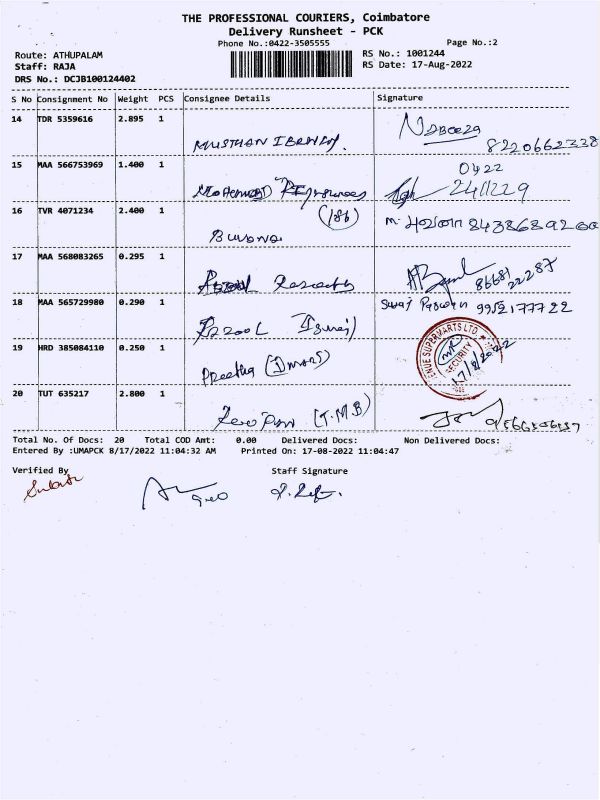 THE PROFESSIONAL COURIERS, Coimbatore
Delivery Runsheet - PCK
Phone No.:0422-3505555
Page No.:2
Route: ATHUPALAM
RS No.: 1001244
Staff: RAJA
RS Date: 17-Aug-2022
DRS No.: DCJB100124402
S No Consignment No Weight PCS Consignee Details Signature
14 TDR 5359616 2.895 1
8220662338
15 MAA 566753969 1.400 1
0422
2411229
16 TVR 4071234 2.400 1
(186)
Buvana
17 MAA 568083265 0.295 1
86681
22287
18 MAA 565729980 0.290 1
9952177722
19 HRD 385084110 0.250 1
Preetha (Dmart)
SUPERMARTS LTD
SECURITY
17/8/2022
20 TUT 635217 2.800 1
(T.M.B)
Total No. Of Docs: 20 Total COD Amt: 0.00 Delivered Docs: Non Delivered Docs:
Entered By :UMAPCK 8/17/2022 11:04:32 AM Printed On: 17-08-2022 11:04:47
Verified By
Staff Signature